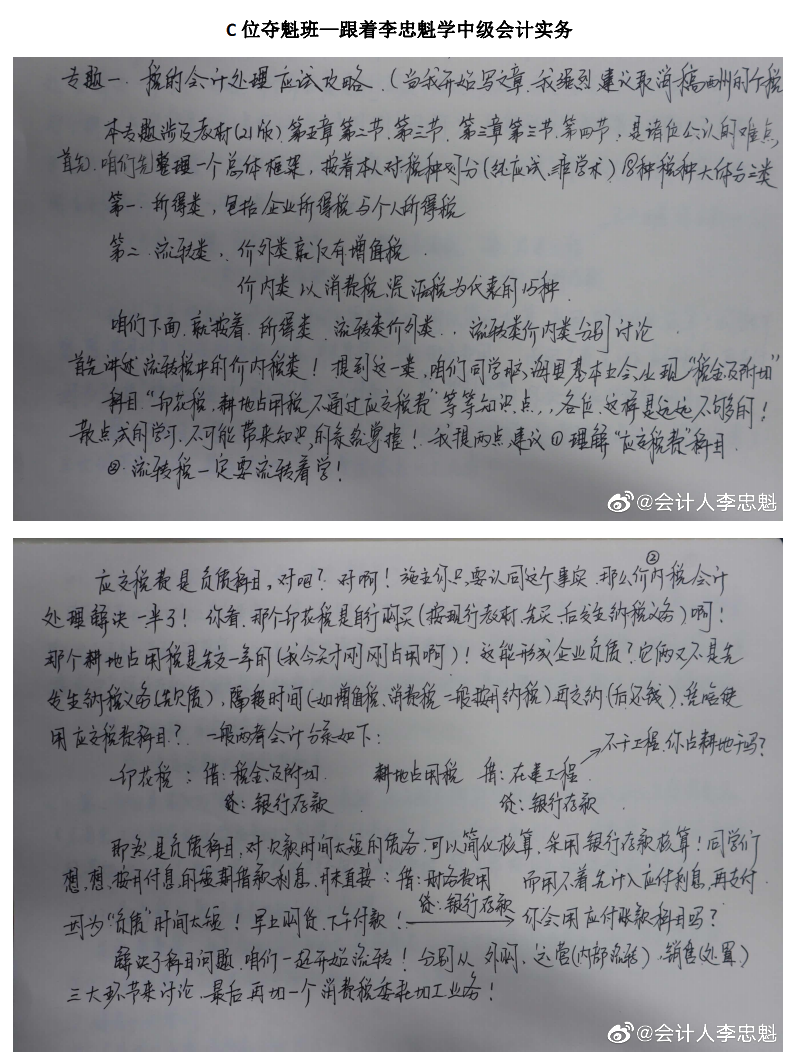 C 位夺魁班—跟着李忠魁学中级会计实务
专题一. 税的会计处理应试攻略.(当我开始写文章.我强烈建议取消稿酬的个税
本专题涉及教材(21版)第五章第二节.第三节.第三章第三节.第四节,是诸位公认的难点
首先.咱们先整理一个总体框架,按着本人对税种划分(纯应试.非学术)18种税种大体分三类
第一.所得类,包括企业所得税与个人所得税
第二.流转类,价外类就仅有增值税.
价内类以消费税.资源税为代表的15种.
咱们下面.就按着.所得类.流转类价外类..流转类价内类分别讨论
首先讲述流转税中的价内税类!提到这一类,咱们同学脑海里基本上会出现“税金及附加”
科目.“印花税,耕地占用税不通过应交税费”等等知识点,,各位.这样是远远不够的!
散点式的学习.不可能带来知识的系统掌握!我提两点建议①理解“应交税费”科目.
②.流转税一定要流转着学!
@会计人李忠魁
应交税费是负债科目,对吧?对啊!施主你只要认同这个事实.那么价内税会计
②
处理解决一半了!你看.那个印花税是自行购买(按现行教材.先买.后发生纳税义务)啊!
那个耕地占用税是先交一年的(我今天才刚刚占用啊)!这能形成企业负债?它俩又不是先
发生纳税义务(先欠债),隔段时间(如增值税.消费税一般按月纳税)再交纳(后还钱).凭啥使
用应交税费科目?.一般两者会计分录如下:
不干工程.你占耕地干吗?
印花税:借:税金及附加 耕地占用税 借:在建工程
贷:银行存款 贷:银行存款
即然是负债科目,对欠款时间太短的债务.可以简化核算.采用银行存款核算!同学们
想,想.按月付息的短期借款利息,月末直接:借:财务费用 而用不着先计入应付利息,再支付.
贷:银行存款
因为“负债”时间太短!早上购货.下午付款! 你会用应付账款科目吗?
解决了科目问题.咱们一起开始流转!分别从外购,运营(内部流转),销售(处置)
三大环节来讨论.最后再加一个消费税委托加工业务!
@会计人李忠魁